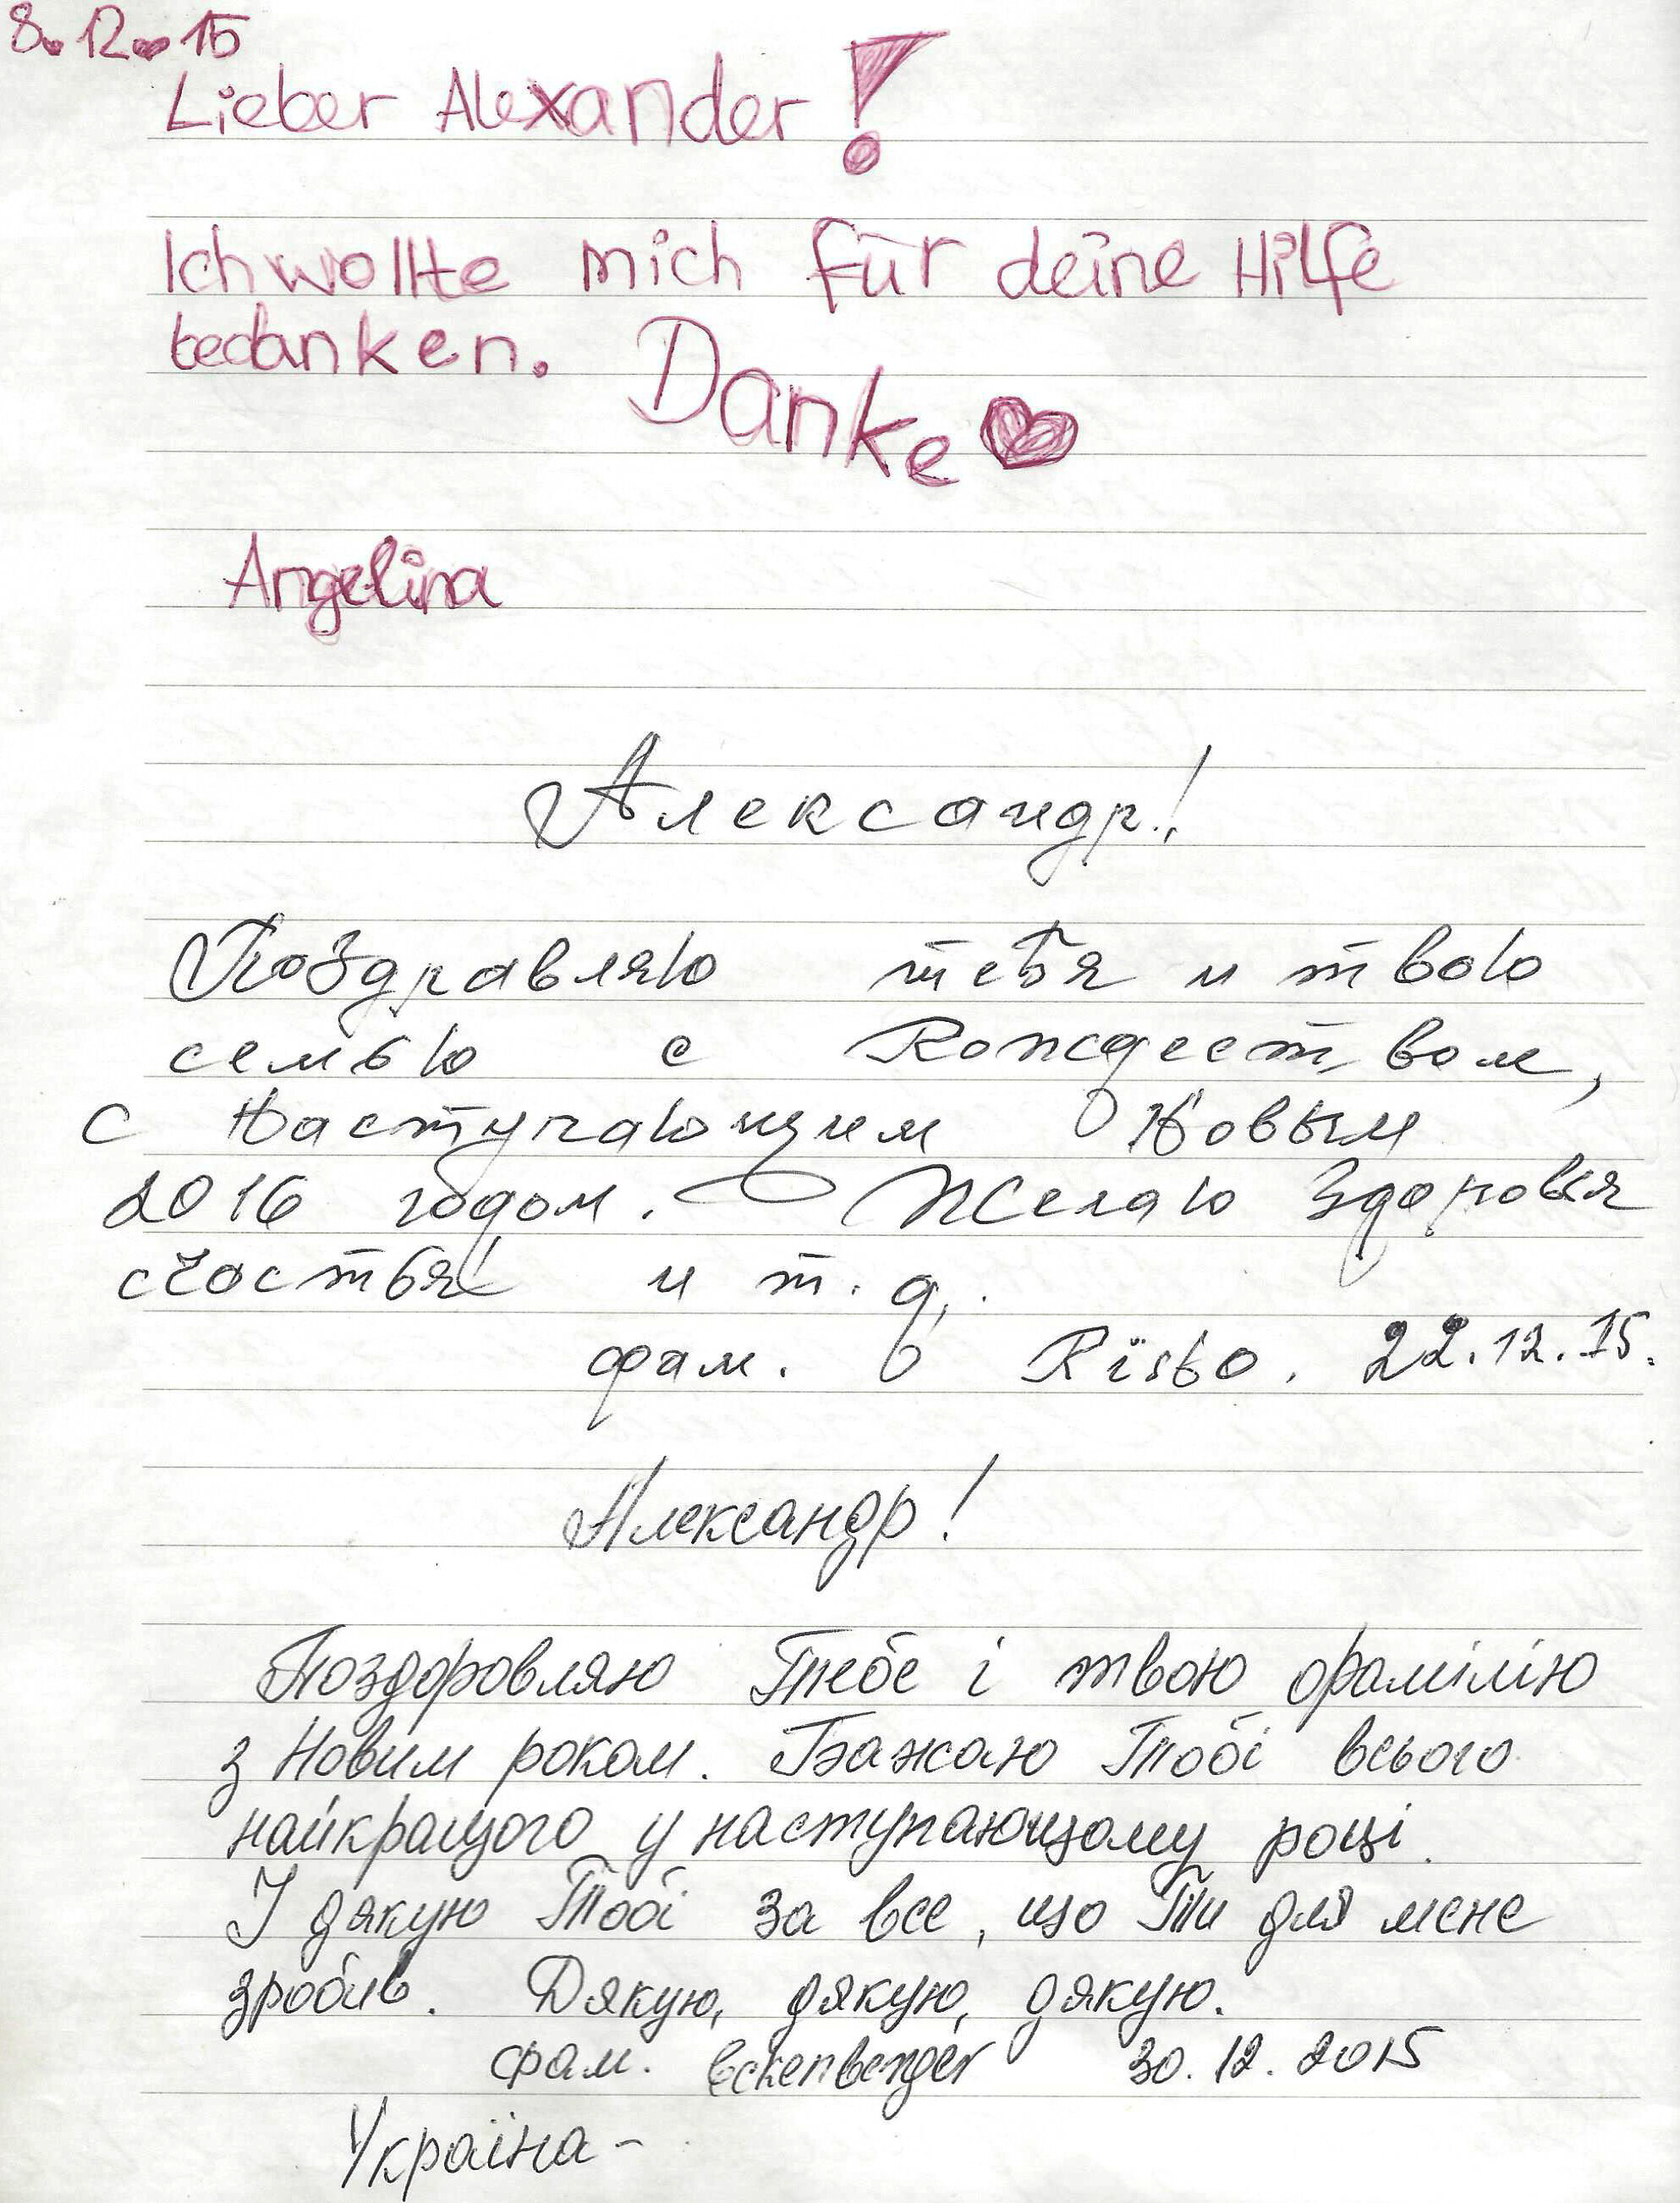 8.12.15
Lieber Alexander!
Ich wollte mich für deine Hilfe
bedanken. Danke
Angelina
Александр!
Поздравляю тебя и твою
семью с Рождеством,
с Наступающим Новым
2016 годом. Желаю здоровья
счастья и т.д.
фам. Risto. 22.12.15.
Александр!
Поздоровляю Тебе і твою фамілію
з Новим роком. Бажаю Тобі всього
найкращого у наступающому році.
І дякую Тобі за все, що Ти для мене
зробив. Дякую, дякую, дякую.
фам. Eckenberger 30.12.2015
Україна-